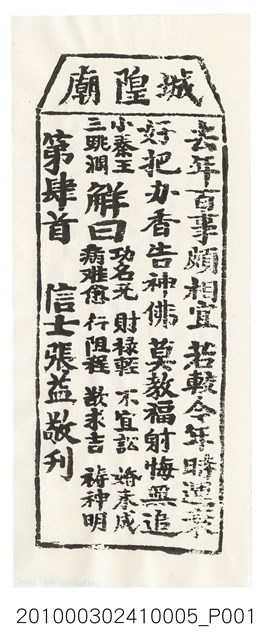 城隍廟
去年百事頗相宜 若較今年時運衰
好把办香告神佛 莫教福謝悔無追
小秦王
三跳澗
解曰
功名无 財祿輕 不宜訟 婚奏成
病难愈 行阻程 敬求吉 禱神明
第肆首 信士張益敬刊
201000302410005_P001